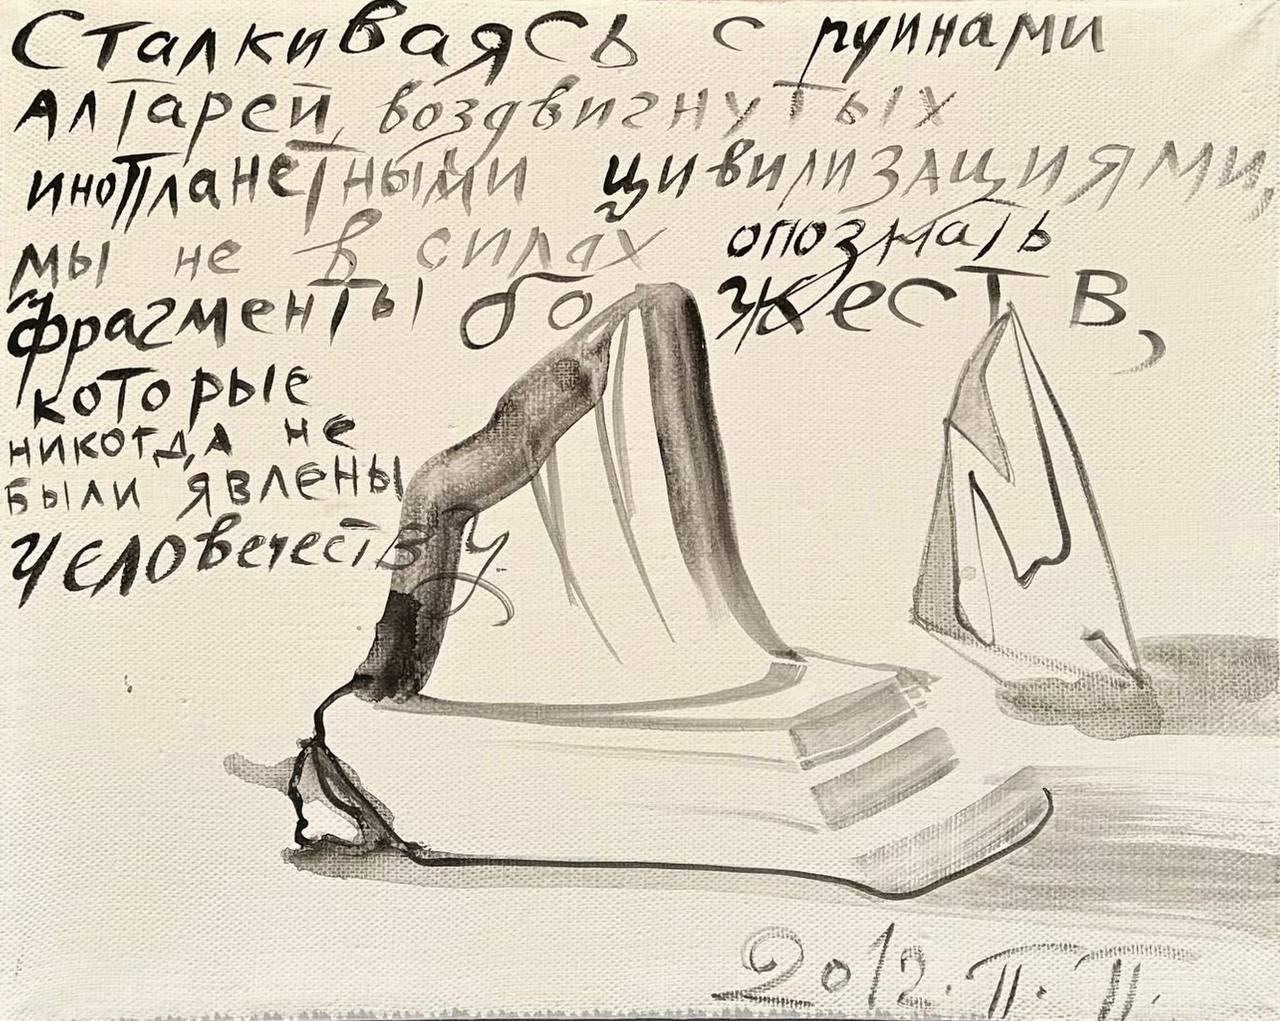 Сталкиваясь с руинами
алтарей, воздвигнутых
инопланетными цивилизациями,
мы не в силах опознать
фрагменты божеств,
которые
никогда не
были явлены
человечеству
2012. П. П.